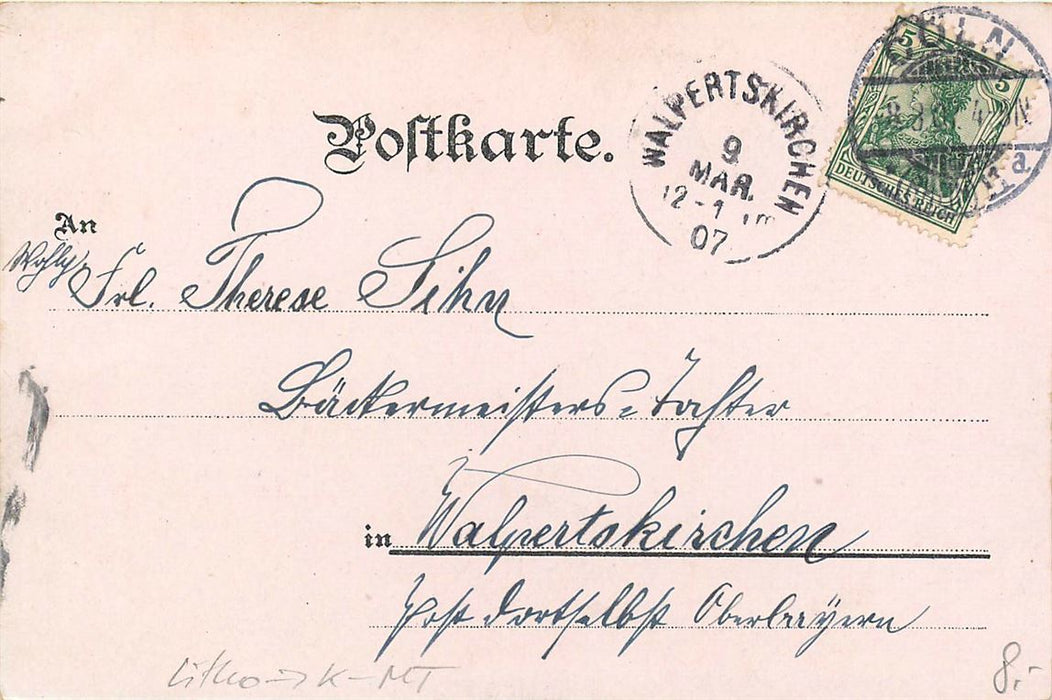 Postkarte.
WALPERTSKIRCHEN
9
MAR.
12-1
07
5 5
DEUTSCHES REICH
An
Wohlg. Frl. Therese Sihn
Bäckermeisters-Tochter
in Walpertskirchen
Post dortselbst Oberbayern
Litho-
8.-